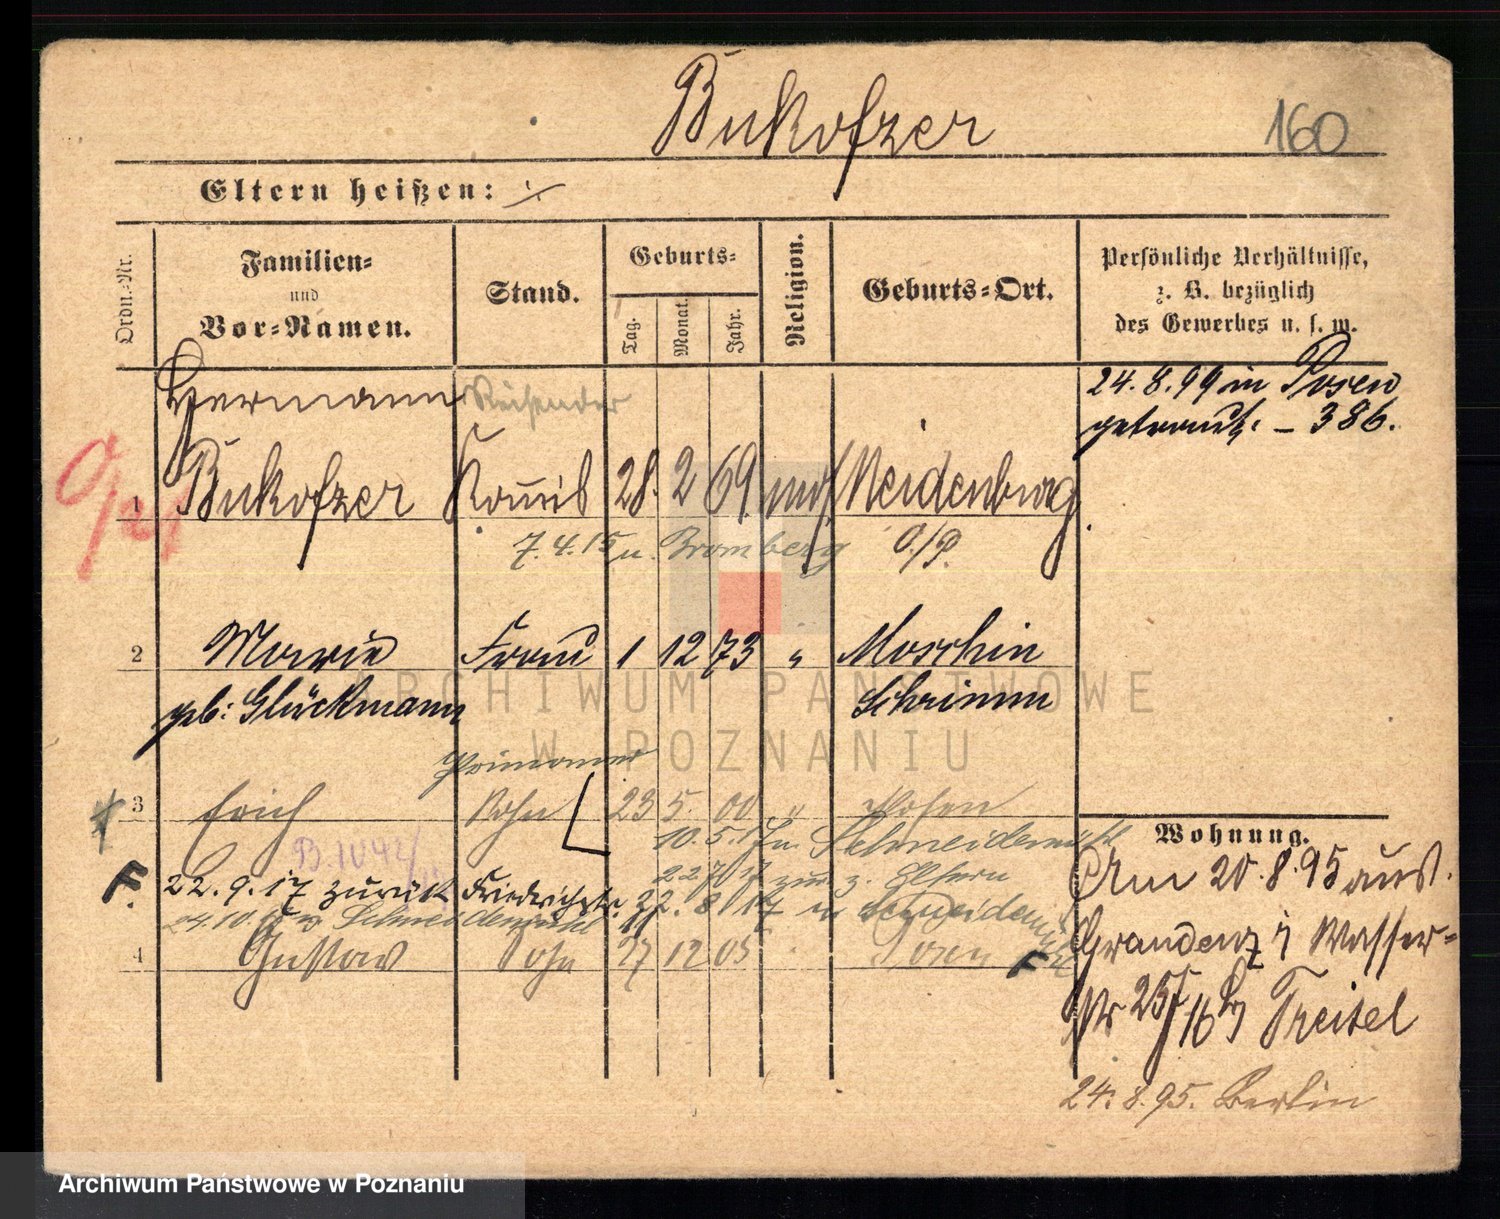 Bukofzer 160
Eltern heißen: ·/.
Ordn.-Nr.
Familien-
und
Vor-Namen.
Stand.
Geburts-
Tag. Monat. Jahr.
Religion.
Geburts-Ort.
Persönliche Verhältnisse,
z. B. bezüglich
des Gewerbes u. s. w.
24.8.99 in Posen
getraut. – 386.
Hermann Reisender
1 Bukofzer Komis 28. 2 69. mos. Neidenburg
7.4.15 n. Bromberg O./P.
2 Marie Frau 1 12 73 " Moschin
geb: Glückmann Schrimm
Primaner
3 Erich Sohn 23 5. 00 " Posen
10.5.17 n. Schneidemühl
B.1042/
22.7.17 zur. z. Eltern
22.9.17 zurück Friedrichstr. 22.8.17 n Schneidemühl
24.10.17 n Schneidemühl
4 Gustav Sohn 27 12 05 Posen
F.
F
Wohnung.
Am 20.8.95 aus.
Graudenz i Wasser-
Str 25/16 by Treitel
24.8.95. Berlin
ARCHIWUM PAŃSTWOWE
W POZNANIU
Archiwum Państwowe w Poznaniu